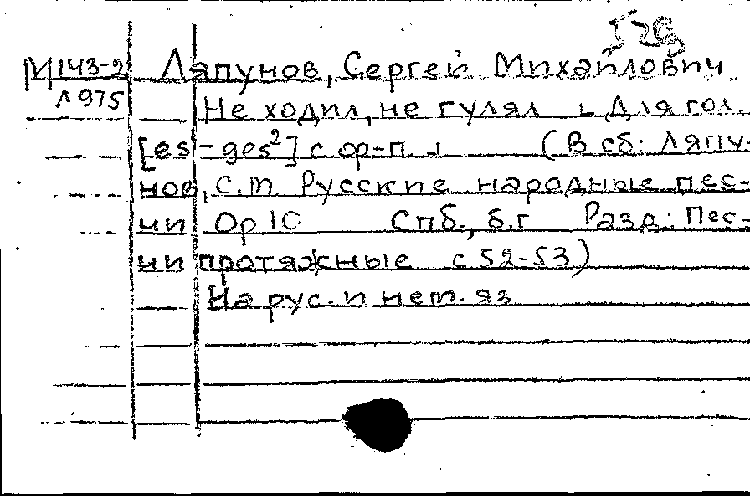 М 143-2 Ляпунов, Сергей Михайлович
Л 975 Не ходил, не гулял Для гол.
[es-ges²] с ф-п. (В сб: Ляпу-
нов, С.М. Русские народные пес-
ни Op 10 Спб., б.г Разд: Пес-
ни протяжные с 52-53)
На рус. и нем. яз